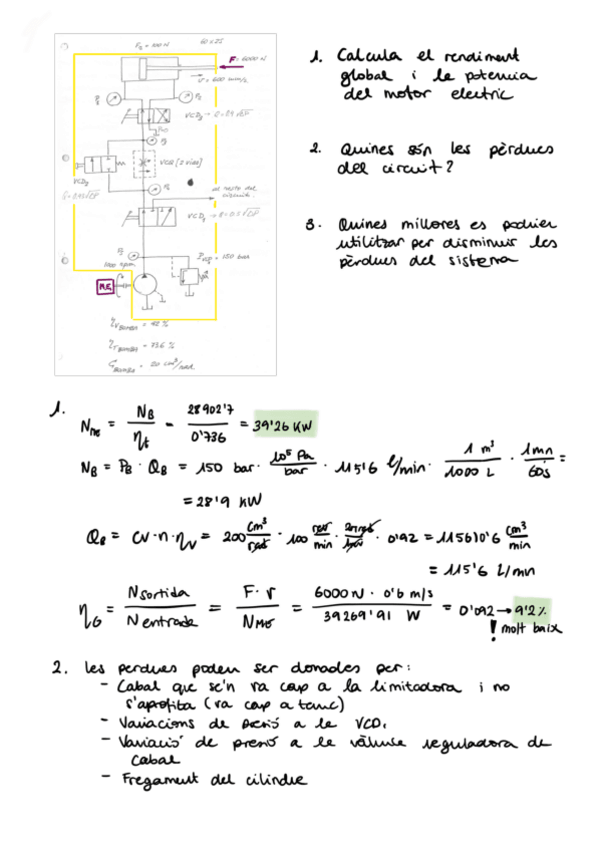 60 x 25
F = 6000 N
v = 600 mm/s
VCB (2 vias)
VCD₂
al resto del
circuito
P = 150 bar
1000 rpm
M.E.
= 92 %
= 73'6 %
= 20 cm³/rad
1. Calcula el rendiment
global i la potencia
del motor electric
2. Quines són les pèrdues
del circuit?
3. Quines millores es podrien
utilitzar per disminuir les
pèrdues del sistema
1.
N_ME = N_B / η_t = 28902'7 / 0'736 = 39'26 KW
N_B = P_B · Q_B = 150 bar · 10⁵ Pa / bar · 115'6 l/min · 1 m³ / 1000 L · 1 min / 60 s =
= 28'9 KW
Q_B = CV · n · η_v = 200 cm³ / rad · 100 rev / min · 2π rad / rev · 0'92 = 115610'6 cm³ / min
= 115'6 L/min
η_G = N sortida / N entrada = F · v / N_ME = 6000 N · 0'6 m/s / 39269'91 W = 0'092 → 9'2 %
! molt baix
2. les perdues poden ser donades per:
- Cabal que se'n va cap a la limitadora i no
s'aprofita (va cap a tanc)
- Variacions de presió a la VCD₁
- Variació de presió a la vàlvula reguladora de
cabal
- Fregament del cilindre